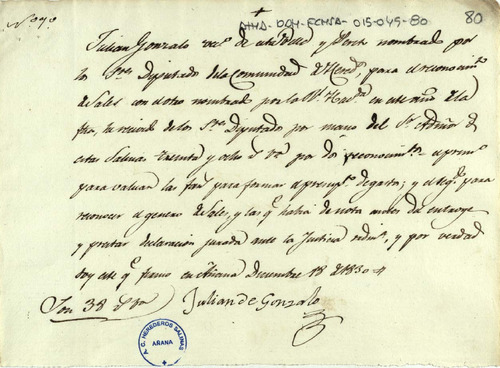 AHHA-DOH-ECHSA-015-049-80
80
Nº 90.
Julian Gonzalo vecº de esta Villa y Perito nombrado por
los Sres Diputados de la Comunidad de Hered.s para el reconocimtº
de Sales con el otro nombrado por la Rl Hacda en este año de la
fha, he recivido de los Sres Diputados por mano del Sr Admor de
estas Salinas treinta y ocho rs vn por dos reconocimtos el primº
para valuar las para formar el presupº de gastos; y el segº para
reconocer el genero de Sales, y las qe havia de antes de
y prestar declaración jurada ante la Justicia ordinª, y por verdad
doy este qe firmo en Añana Diciembre 18 de 1830
Son 38 rs vn Julian de Gonzalo
A.C. HEREDEROS SALINAS
AÑANA